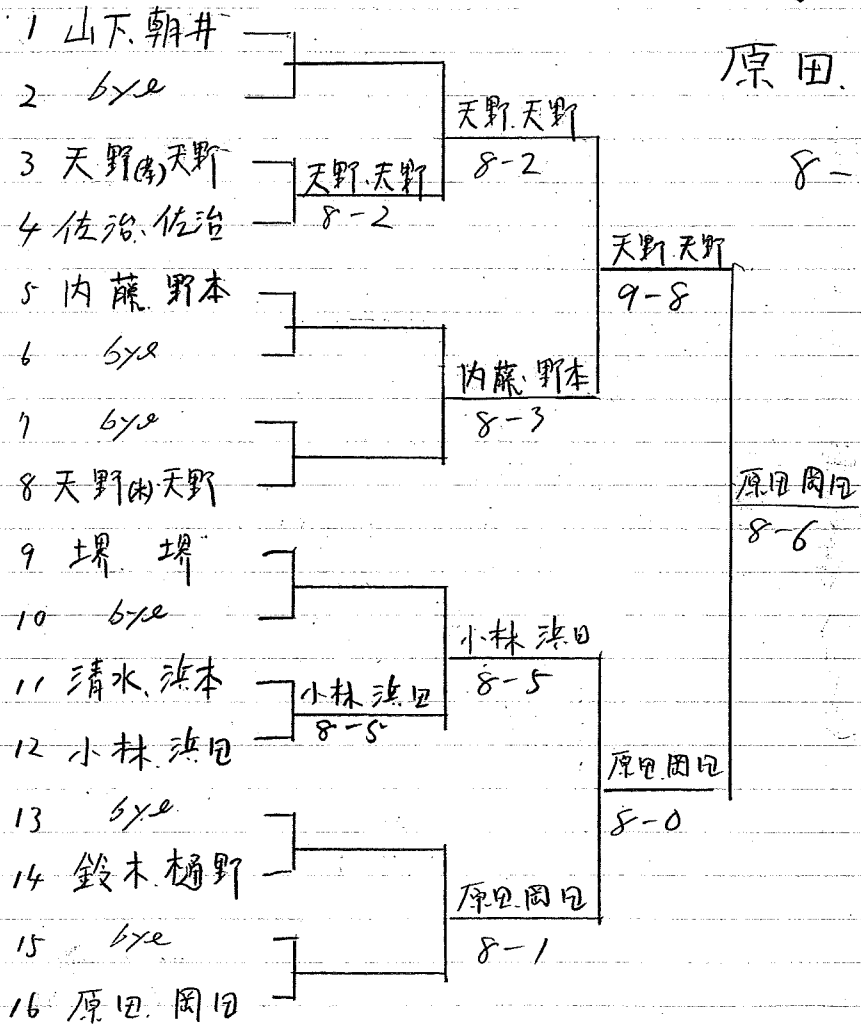 1 山下.朝井
2 bye
3 天野(孝)天野
4 佐治、佐治
5 内藤.野本
6 bye
7 bye
8 天野 天野
9 堺. 堺
10 bye
11 清水、浜本
12 小林.浜田
13 bye
14 鈴木.樋野
15 bye
16 原田.岡田
天野.天野
8-2
小林 浜田
8-5
天野.天野
8-2
内藤.野本
8-3
小林 浜田
8-5
原田.岡田
8-1
天野.天野
9-8
原田.岡田
8-0
原田 岡田
8-6
原田.
8-